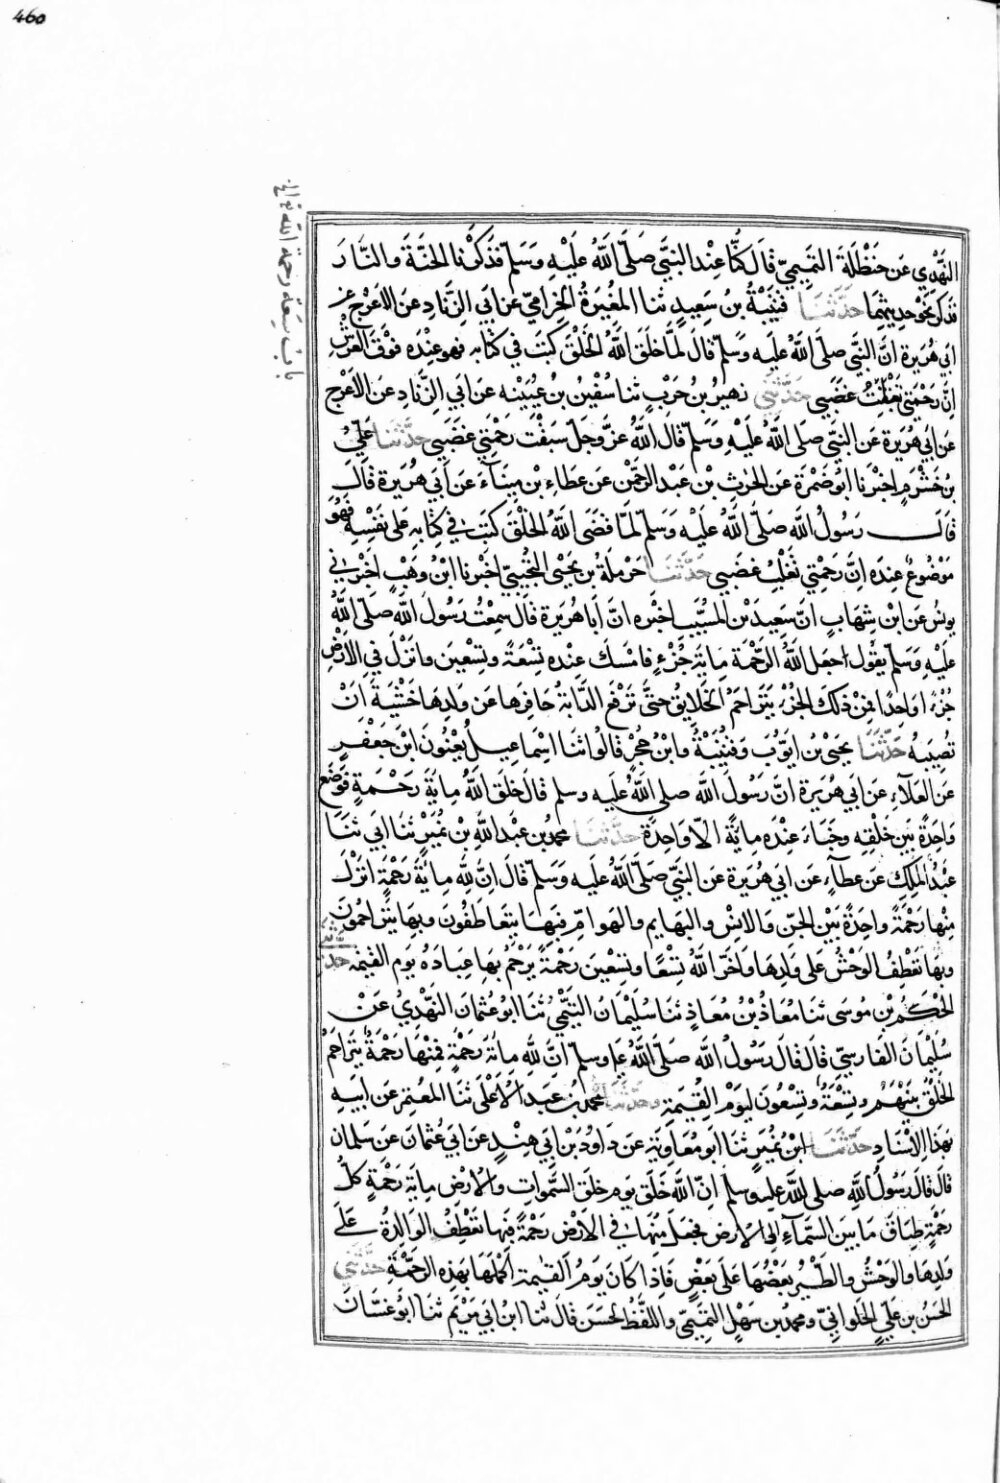 460
باب سعة رحمة الله
النَّهْدِي عَن حَنْظَلَةَ التَّمِيمِيِّ قَالَ كُنَّا عِنْدَ النَّبِيِّ صَلَّى اللَّهُ عَلَيْهِ وَسَلَّمَ فَذَكَّرَنَا الْجَنَّةَ وَالنَّارَ
فذكر نَحْوَ حَدِيثِهِمَا حَدَّثَنَا قُتَيْبَةُ بْنُ سَعِيدٍ ثنا الْمُغِيرَةُ الْحِزَامِيّ عَنْ أَبِي الزِّنَادِ عَنِ الْأَعْرَجِ عَنْ
أبي هُرَيْرَةَ أَنَّ النَّبِيَّ صلى اللهُ عَلَيهِ وَسَلَّمَ قَالَ لَمَّا خَلَقَ اللَّهُ الْخَلْقَ كَتَبَ فِي كِتَابِهِ فهو عِنْدَهُ فَوْقَ الْعَرْشِ
إِنَّ رَحْمَتِي تَغْلِبُ غَضَبِي حَدَّثَنِي زهير بن حَرْبٍ ثنا سُفْيٰنُ بْنُ عُيَيْنَه عَن أَبِي الزِّنَادِ عَنِ الْأَعْرَجِ
عَن أبِي هُرَيرَةَ عَنِ النَّبِيِّ صلى اللَّهُ عَلَيْهِ وَسَلَّمَ قَالَ اللَّهُ عَزَّ وَجَلَّ سَبَقَتْ رَحْمَتِي غَضَبِي حَدَّثَنَا عَلِيُّ
بْنُ خَشْرَمٍ اخبرنا ابُو ضَمْرَةَ عَنِ الْحٰرِثِ بْنِ عَبْدِ الرَّحْمٰنِ عَنْ عَطَاءِ بْنِ مِينَآءَ عَنْ أَبِي هُرَيْرَةَ قَالَ
قَالَ رَسُولُ اللَّهِ صَلَّى اللَّهُ عَلَيْهِ وَسَلَّمَ لَمَّا قَضَى اللَّهُ الْخَلْقَ كَتَبَ فِي كِتَابِهِ عَلَى نَفْسِهِ فَهُوَ
مَوْضُوعٌ عِنْدَهُ إِنَّ رَحْمَتِي تَغْلِبُ غَضَبِي حَدَّثَنَا حَرْمَلَةُ بن يَحْيَى التُّجِيبِيّ اخبرنا ابْنُ وَهْبٍ اخبرني
يونس عَن ابْنِ شِهَابٍ انَّ سَعِيدَ بْنَ الْمُسَيَّبِ اخبَره انَّ أَبَا هُرَيرَةَ قَالَ سَمِعْتُ رَسُولَ اللَّهِ صَلَّى اللَّهُ
عَلَيْهِ وَسَلَّمَ يَقُولُ جعل اللَّهُ الرَّحْمَةَ مِايَةَ جُزْءٍ فَامْسَكَ عنده تِسْعَةً وَتِسْعِينَ وَانْزَلَ فِي الْأَرْضِ
جُزْءًا وَاحِدًا فَمِنْ ذَلِكَ الْجُزْءِ يَتَرَاحَمُ الْخَلَايِقُ حَتَّى تَرْفَعَ الدَّابَّةُ حَافِرَهَا عَن وَلَدِهَا خَشْيَةَ انْ
تُصِيبَهُ حَدَّثَنَا يحيى بْنُ ايّوبَ وَقُتَيْبَةُ وابْنُ حُجْرٍ قَالُوا ثنا اسْمَاعِيلُ يَعْنُونَ ابْنَ جَعْفَرٍ
عَنِ الْعَلَآءِ عَن ابِي هُرَيرَة انَّ رَسُولَ اللَّهِ صلى اللهُ عَلَيهِ وسلم قَالَ خَلَقَ اللَّهُ مِايَةَ رَحْمَةٍ فَوَضَع
وَاحِدَةً بَيْنَ خَلْقِهِ وَخَبَأَ عِنْدَهُ مِايَةً الَّا وَاحِدَةً حَدَّثَنَا محمد بن عبد اللَّهِ بْنِ نُمَيْرٍ ثنا أبي ثَنَا
عَبْدُ الْمَلِكِ عَن عَطَآءٍ عَن ابِي هُرَيرَةَ عَنِ النَّبِيِّ صَلَّى اللَّهُ عَلَيْهِ وَسَلَّمَ قَالَ انَّ لِلَّهِ مِايَةَ رَحْمَةٍ انْزَلَ
مِنْهَا رَحْمَةً وَاحِدَةً بَيْنَ الْجِنِّ وَالانْسِ والبهايم والهوامّ فَبِهَا يَتَعَاطَفُونَ وَبِهَا يَتَرَاحَمُونَ
وَبِهَا تَعْطِفُ الْوَحْشُ عَلَى وَلَدِهَا وَاخَّرَ اللَّهُ تِسْعًا وَتِسْعِينَ رَحْمَةً يَرْحَمُ بِهَا عِبَادَهُ يَوْمَ القيمة حدثني
الْحَكَمُ بْنُ مُوسَى ثنا مُعَاذُ بْنُ مُعَاذٍ ثنا سُلَيْمَانُ التَّيْمِيُّ ثنا ابُو عُثْمَانَ النَّهْدِيُّ عَنْ
سُلَيْمَانَ الْفَارِسِيِّ قَالَ قَالَ رَسُولُ اللَّهِ صَلَّى اللَّهُ عليه وسلم انَّ لِلَّهِ مِائَةَ رَحْمَةٍ فَمِنْهَا رَحْمَةٌ يَتَرَاحَمُ
الْخَلْقُ بَيْنَهُم وَتِسْعَةٌ وَتِسْعُونَ لِيَوْمِ الْقِيٰمَةِ وحَدَّثَنَا محمد بن عبد الْأَعْلَى ثنا المعْتَمِرُ عَن ابِيهِ
بِهَذَا الْإِسْنَادِ حَدَّثَنَا ابْنُ نُمَيرٍ ثنا ابو مُعَاوِيَةَ عَن دَاوُدَ بْنِ ابِي هِنْدٍ عَن ابِي عُثْمَانَ عَنْ سَلْمَانَ
قَالَ قَالَ رَسُولُ اللَّهِ صلى الله عليه وسلم انّ اللَّهَ خَلَقَ يَوم خلق السَّمٰوات والْأَرْضَ مِايَةَ رَحْمَةٍ كُلُّ
رَحْمَةٍ طِبَاقَ مَا بَينَ السَّمَآءِ إلى الْأَرض فجعل مِنْهَا في الْأَرْضِ رَحْمَةً فَبِهَا تَعْطِفُ الْوَالِدَةُ عَلَى
وَلَدِهَا وَالْوَحْشُ والطَّيْرُ بَعْضُهَا عَلَى بَعْضٍ فَاذَا كَانَ يَوْمُ الْقِيٰمَةِ اكْمَلَهَا بِهَذِهِ الرَّحْمَةِ حَدَّثَنِي
الْحَسَنُ بن عَلِيٍّ الْحُلْوَانِيّ ومحمد بن سَهْلٍ التَّمِيمِيّ وَاللَّفْظُ لحَسَنٍ قَالَ ثنا ابن ابي مَرْيَمَ ثنا ابُو غَسَّانَ